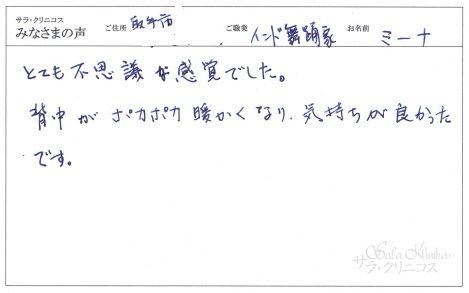 サラ・クリニコス
みなさまの声 ご住所 取手市 ご職業 インド舞踊家 お名前 ミーナ
とても不思議な感覚でした。
背中がポカポカ暖かくなり、気持ちが良かった
です。
Sala Klinikos
サラ・クリニコス